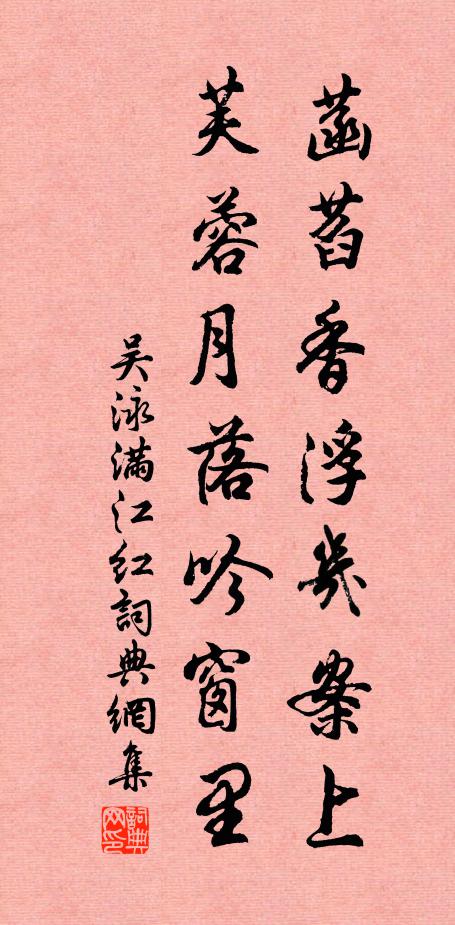 菡萏香浮幾案上
芙蓉月落吟窗里
吴泳满江红詞典網集
詞典网印